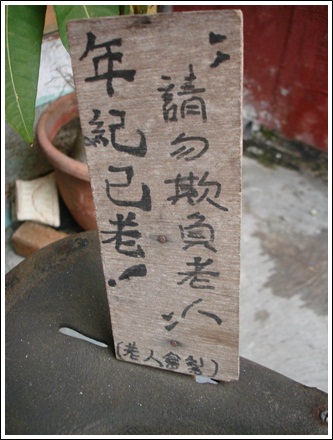 請勿欺負老人
年紀己老！
(老人會製)